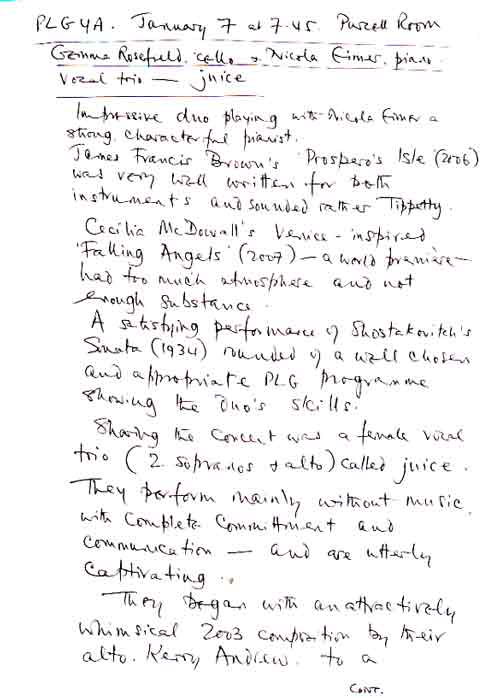 PLG 4A. January 7 at 7.45. Purcell Room
Gemma Rosefield, cello & Nicola Eimer, piano
Vocal trio — juice
Impressive duo playing with Nicola Eimer a
strong, characterful pianist.
James Francis Brown's 'Prospero's Isle (2006)
was very well written for both
instruments and sounded rather Tippetty.
Cecilia McDowall's Venice-inspired
'Falling Angels' (2007) — a world première —
had too much atmosphere and not
enough substance.
A satisfying performance of Shostakovitch's
Sonata (1934) rounded off a well chosen
and appropriate PLG programme
showing the duo's skills.
Sharing the concert was a female vocal
trio (2 sopranos & alto) called juice.
They perform mainly without music,
with complete committment and
communication — and are utterly
captivating ..
They began with an attractively
whimsical 2003 composition by their
alto. Kerry Andrew. to a
CONT.